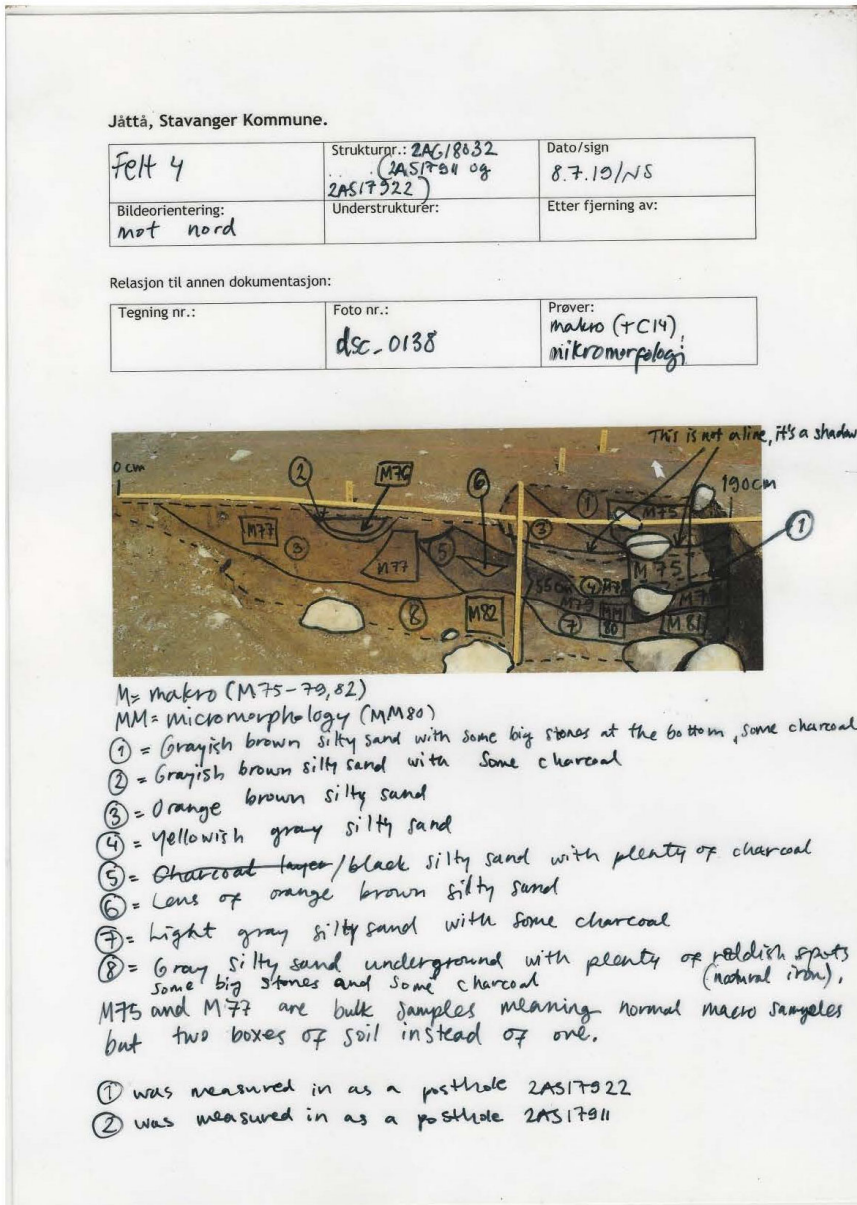 Jåttå, Stavanger Kommune.
Felt 4
Strukturnr.: 2AG18032
(2AS17911 og
2AS17922)
Dato/sign
8.7.19/NS
Bildeorientering:
mot nord
Understrukturer:
Etter fjerning av:
Relasjon til annen dokumentasjon:
Tegning nr.:
Foto nr.:
dsc_0138
Prøver:
makro (+C14),
mikromorfologi
This is not a line, it's a shadow
0 cm
2
M76
6
1
M75
190cm
M77
3
M77
5
3
1
M75
55cm
4
M78
M79
8
M82
7
MM
80
M81
M= makro (M75-79,82)
MM= micromorphology (MM80)
1 = Grayish brown silty sand with some big stones at the bottom, some charcoal
2 = Grayish brown silty sand with some charcoal
3 = Orange brown silty sand
4 = Yellowish gray silty sand
5 = Charcoal layer/black silty sand with plenty of charcoal
6 = Lens of orange brown silty sand
7 = Light gray silty sand with some charcoal
8 = Gray silty sand underground with plenty of reddish spots
some big stones and some charcoal (natural iron),
M75 and M77 are bulk samples meaning normal macro samples
but two boxes of soil instead of one.
1 was measured in as a posthole 2AS17922
2 was measured in as a posthole 2AS17911